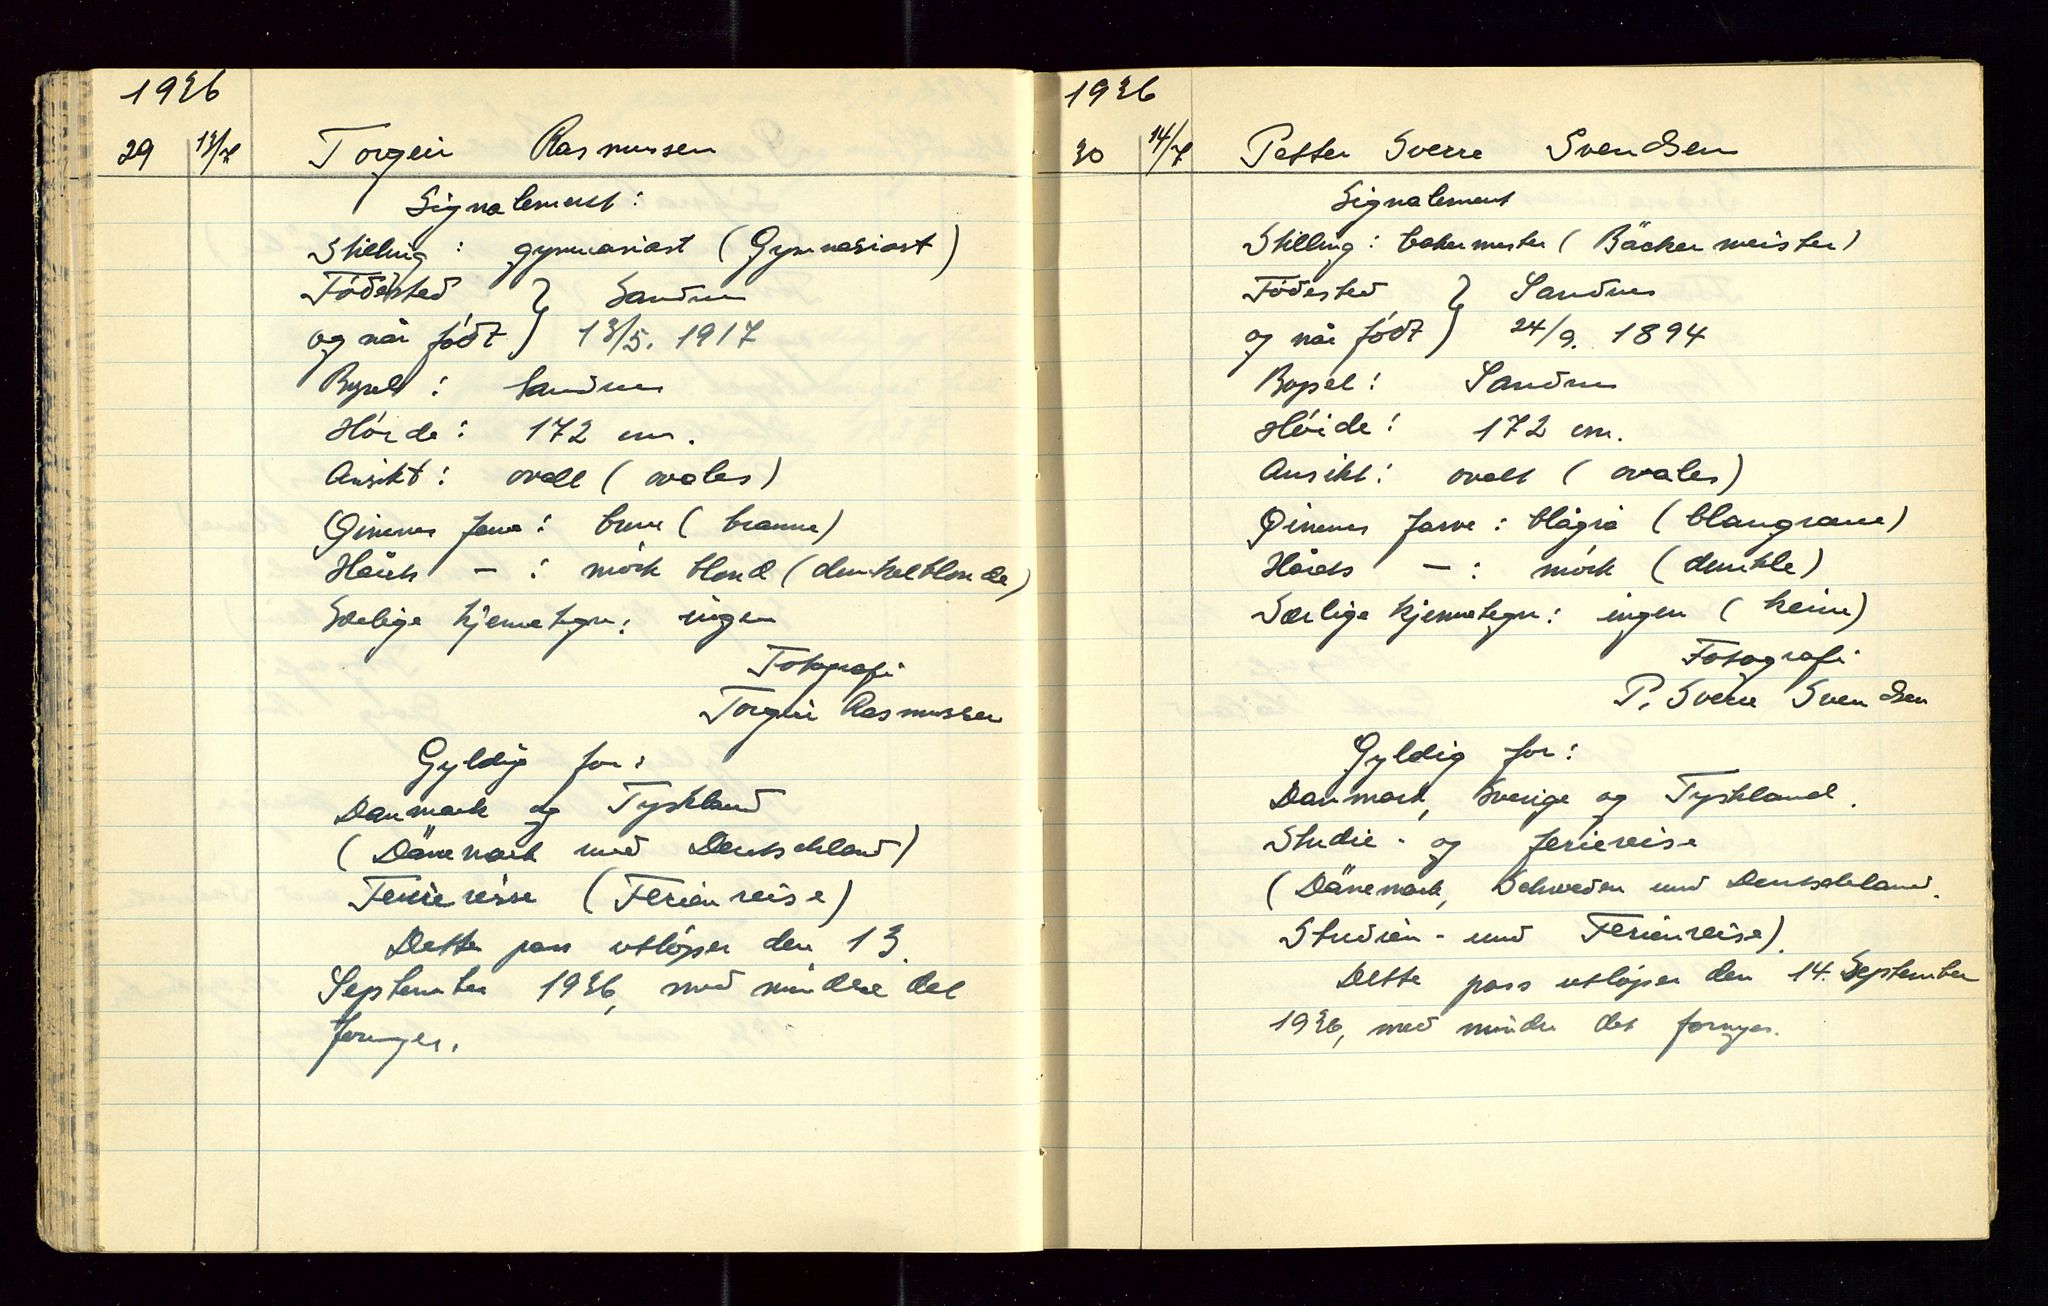 1936
29 13/7 Torgeir Rasmussen
Signalement:
Stilling: gymnasiast (Gymnasiast)
Fødested } Sandnes
og når født } 13/5. 1917
Bopel: Sandnes
Høide: 172 cm.
Ansikt: ovalt (ovales)
Øinenes farve: brune (braune)
Hårets — : mörk blond (dunkelblonde)
Særlige kjennetegn: ingen
Fotografi
Torgeir Rasmussen
Gyldig for:
Danmark og Tyskland
(Dänemark und Deutschland)
Feriereise (Ferienreise)
Dette pass utløper den 13.
September 1936, med mindre det
fornyes.
1936
30 14/7 Petter Sverre Svendsen
Signalement
Stilling: bakermester (Bäckermeister)
Fødested } Sandnes
og når født } 24/9. 1894
Bopel: Sandnes
Høide: 172 cm.
Ansikt: ovalt (ovales)
Øinenes farve: blågrå (blaugraue)
Hårets — : mörk (dunkle)
Særlige kjennetegn: ingen (keine)
Fotografi
P. Sverre Svendsen
Gyldig for:
Danmark, Sverige og Tyskland.
Studie- og feriereise
(Dänemark, Schweden und Deutschland.
Studien- und Ferienreise).
Dette pass utløper den 14. September
1936, med mindre det fornyes.